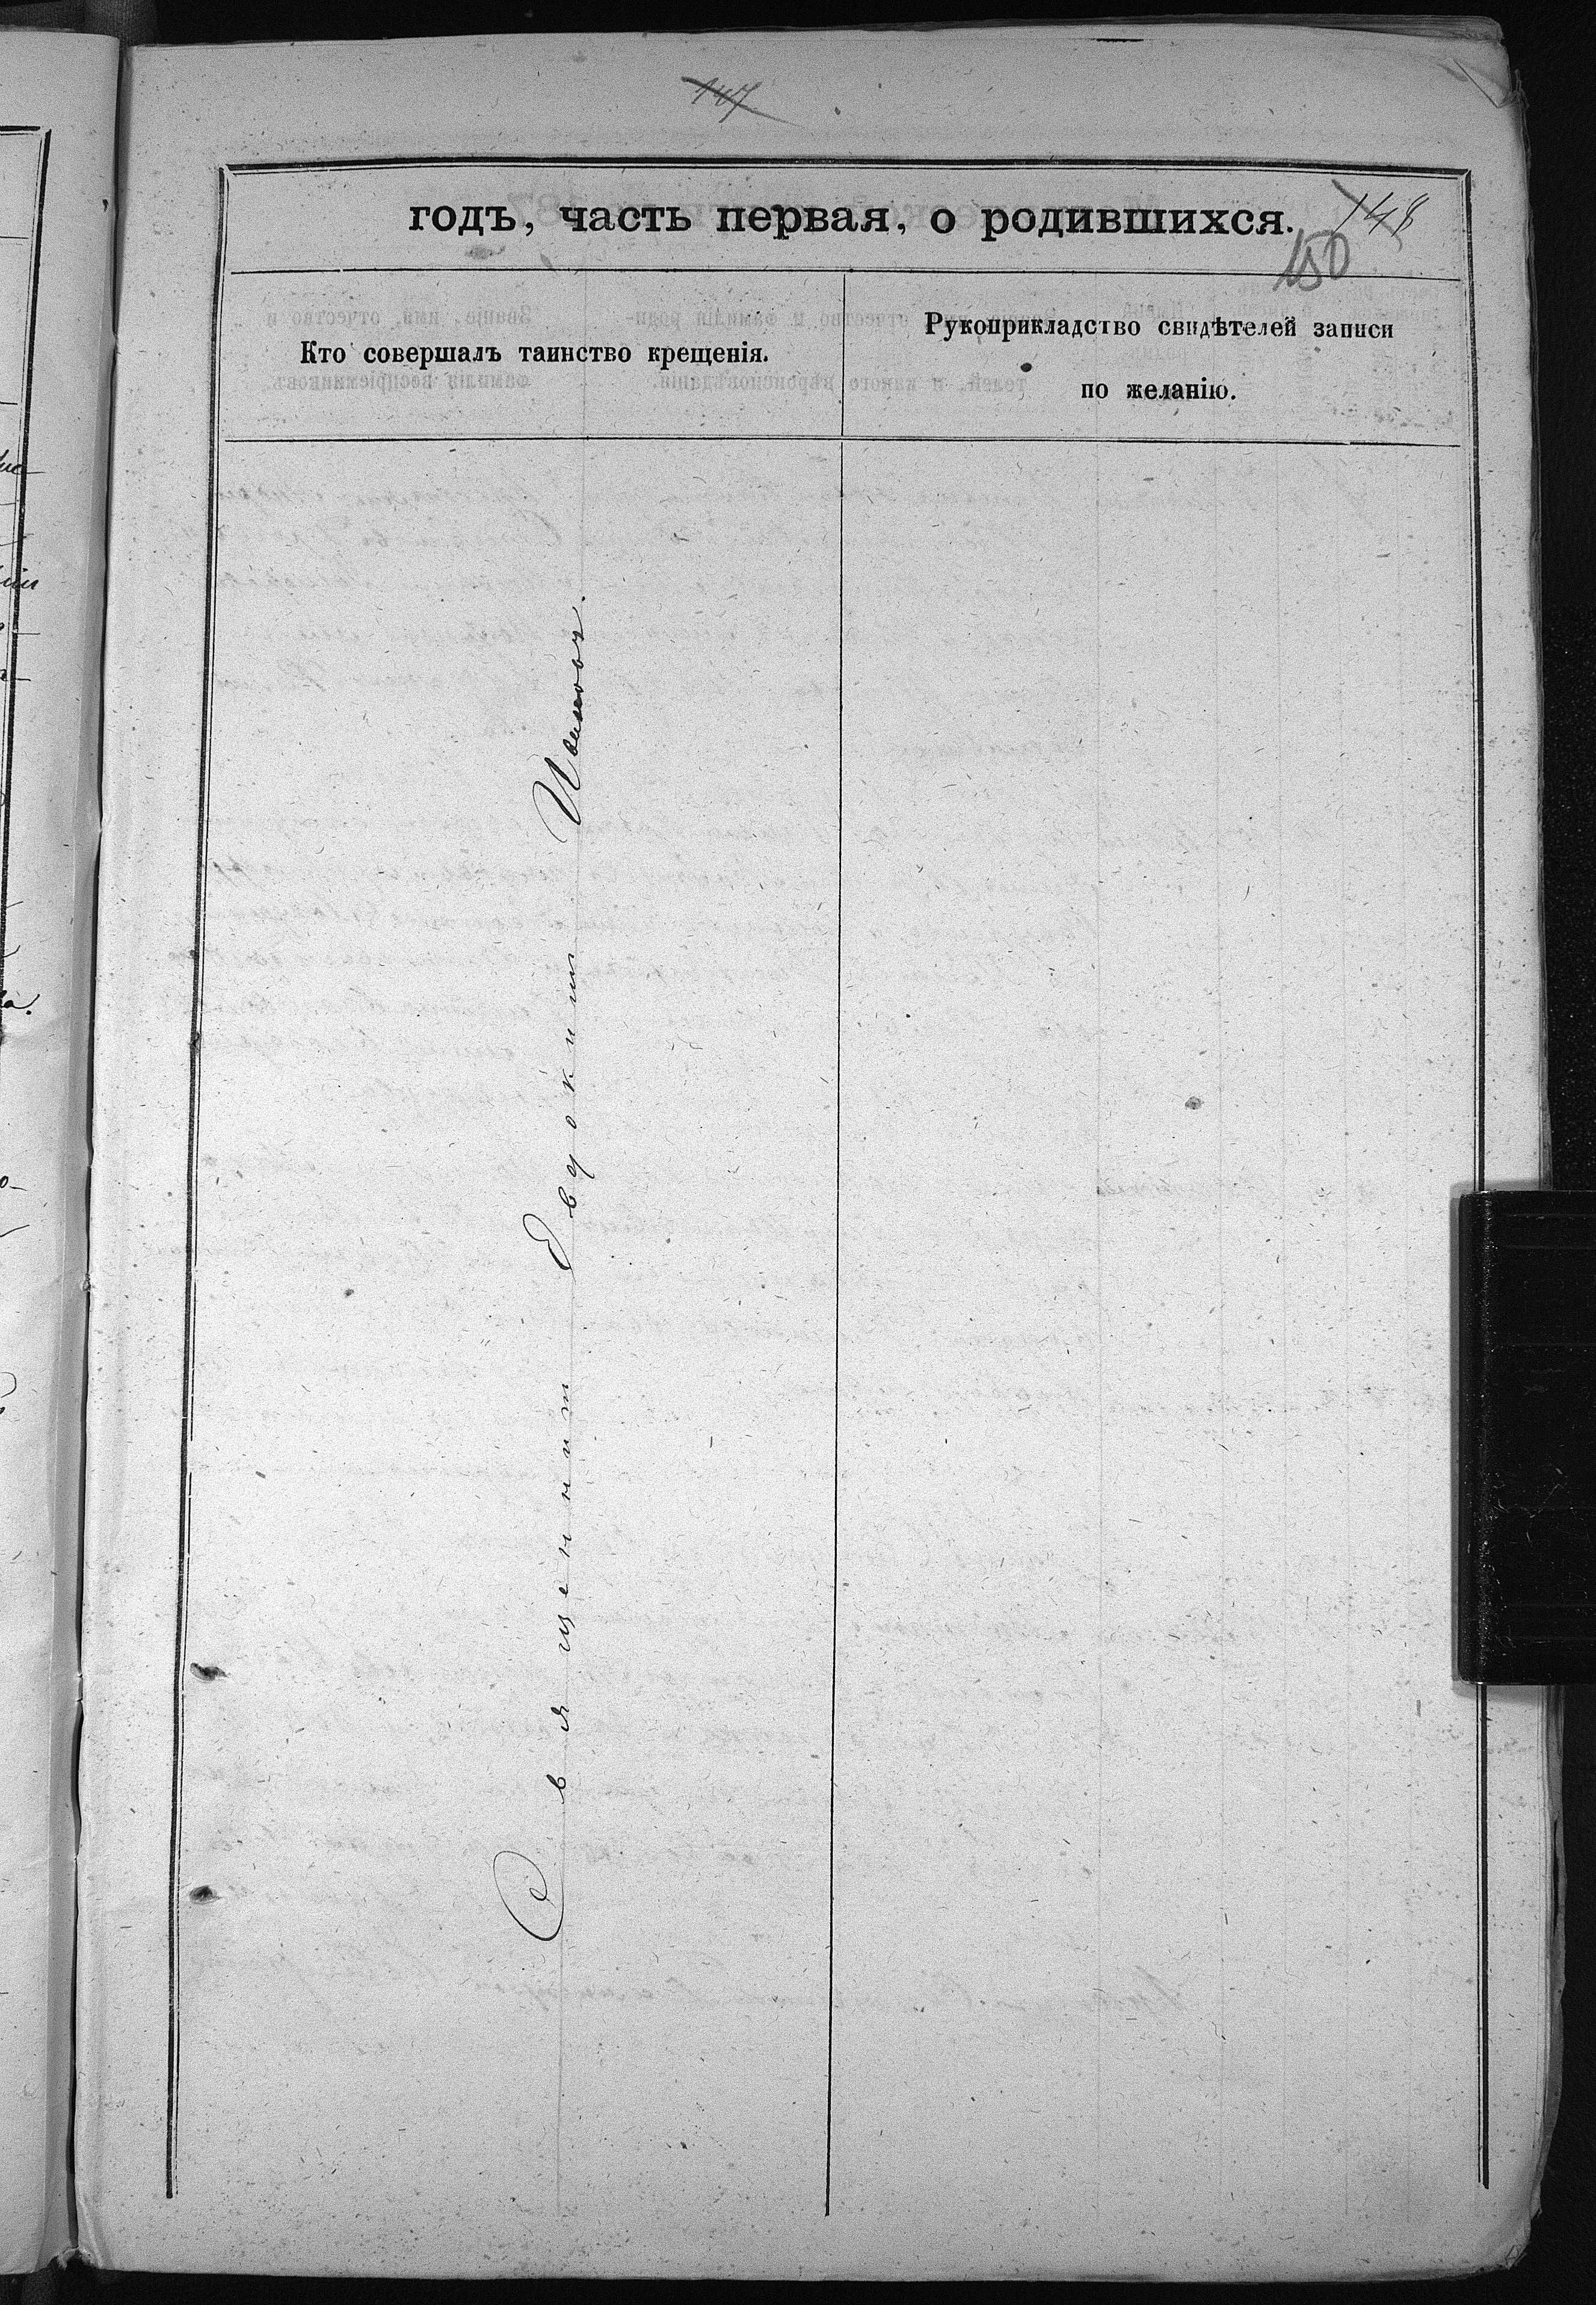 147
годъ, часть первая, о родившихся.
148
150
Кто совершалъ таинство крещенія.
Рукоприкладство свидѣтелей записи
по желанію.
Священник Евдоким Иванов.